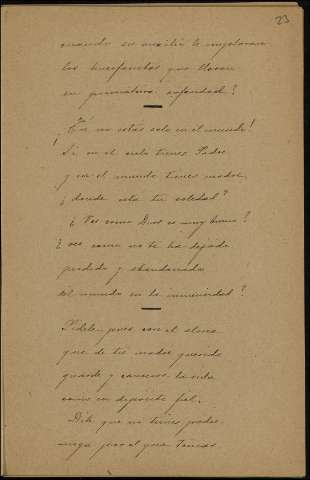 23
cuando su auxilio te imploraran
los huerfanitos que lloran
en prematura orfandad?
¡Tú no estás solo en el mundo!
Si en el cielo tienes Padre
y en el mundo tienes madre,
¿donde esta tu soledad?
¿Ves como Dios es muy bueno?
¿ves como no te ha dejado
perdido y abandonado
del mundo en la inmensidad?
Pidele pues con el alma
que de tu madre querida
guarde y conserve la vida
como un deposito fiel.
Dile que no tienes padre